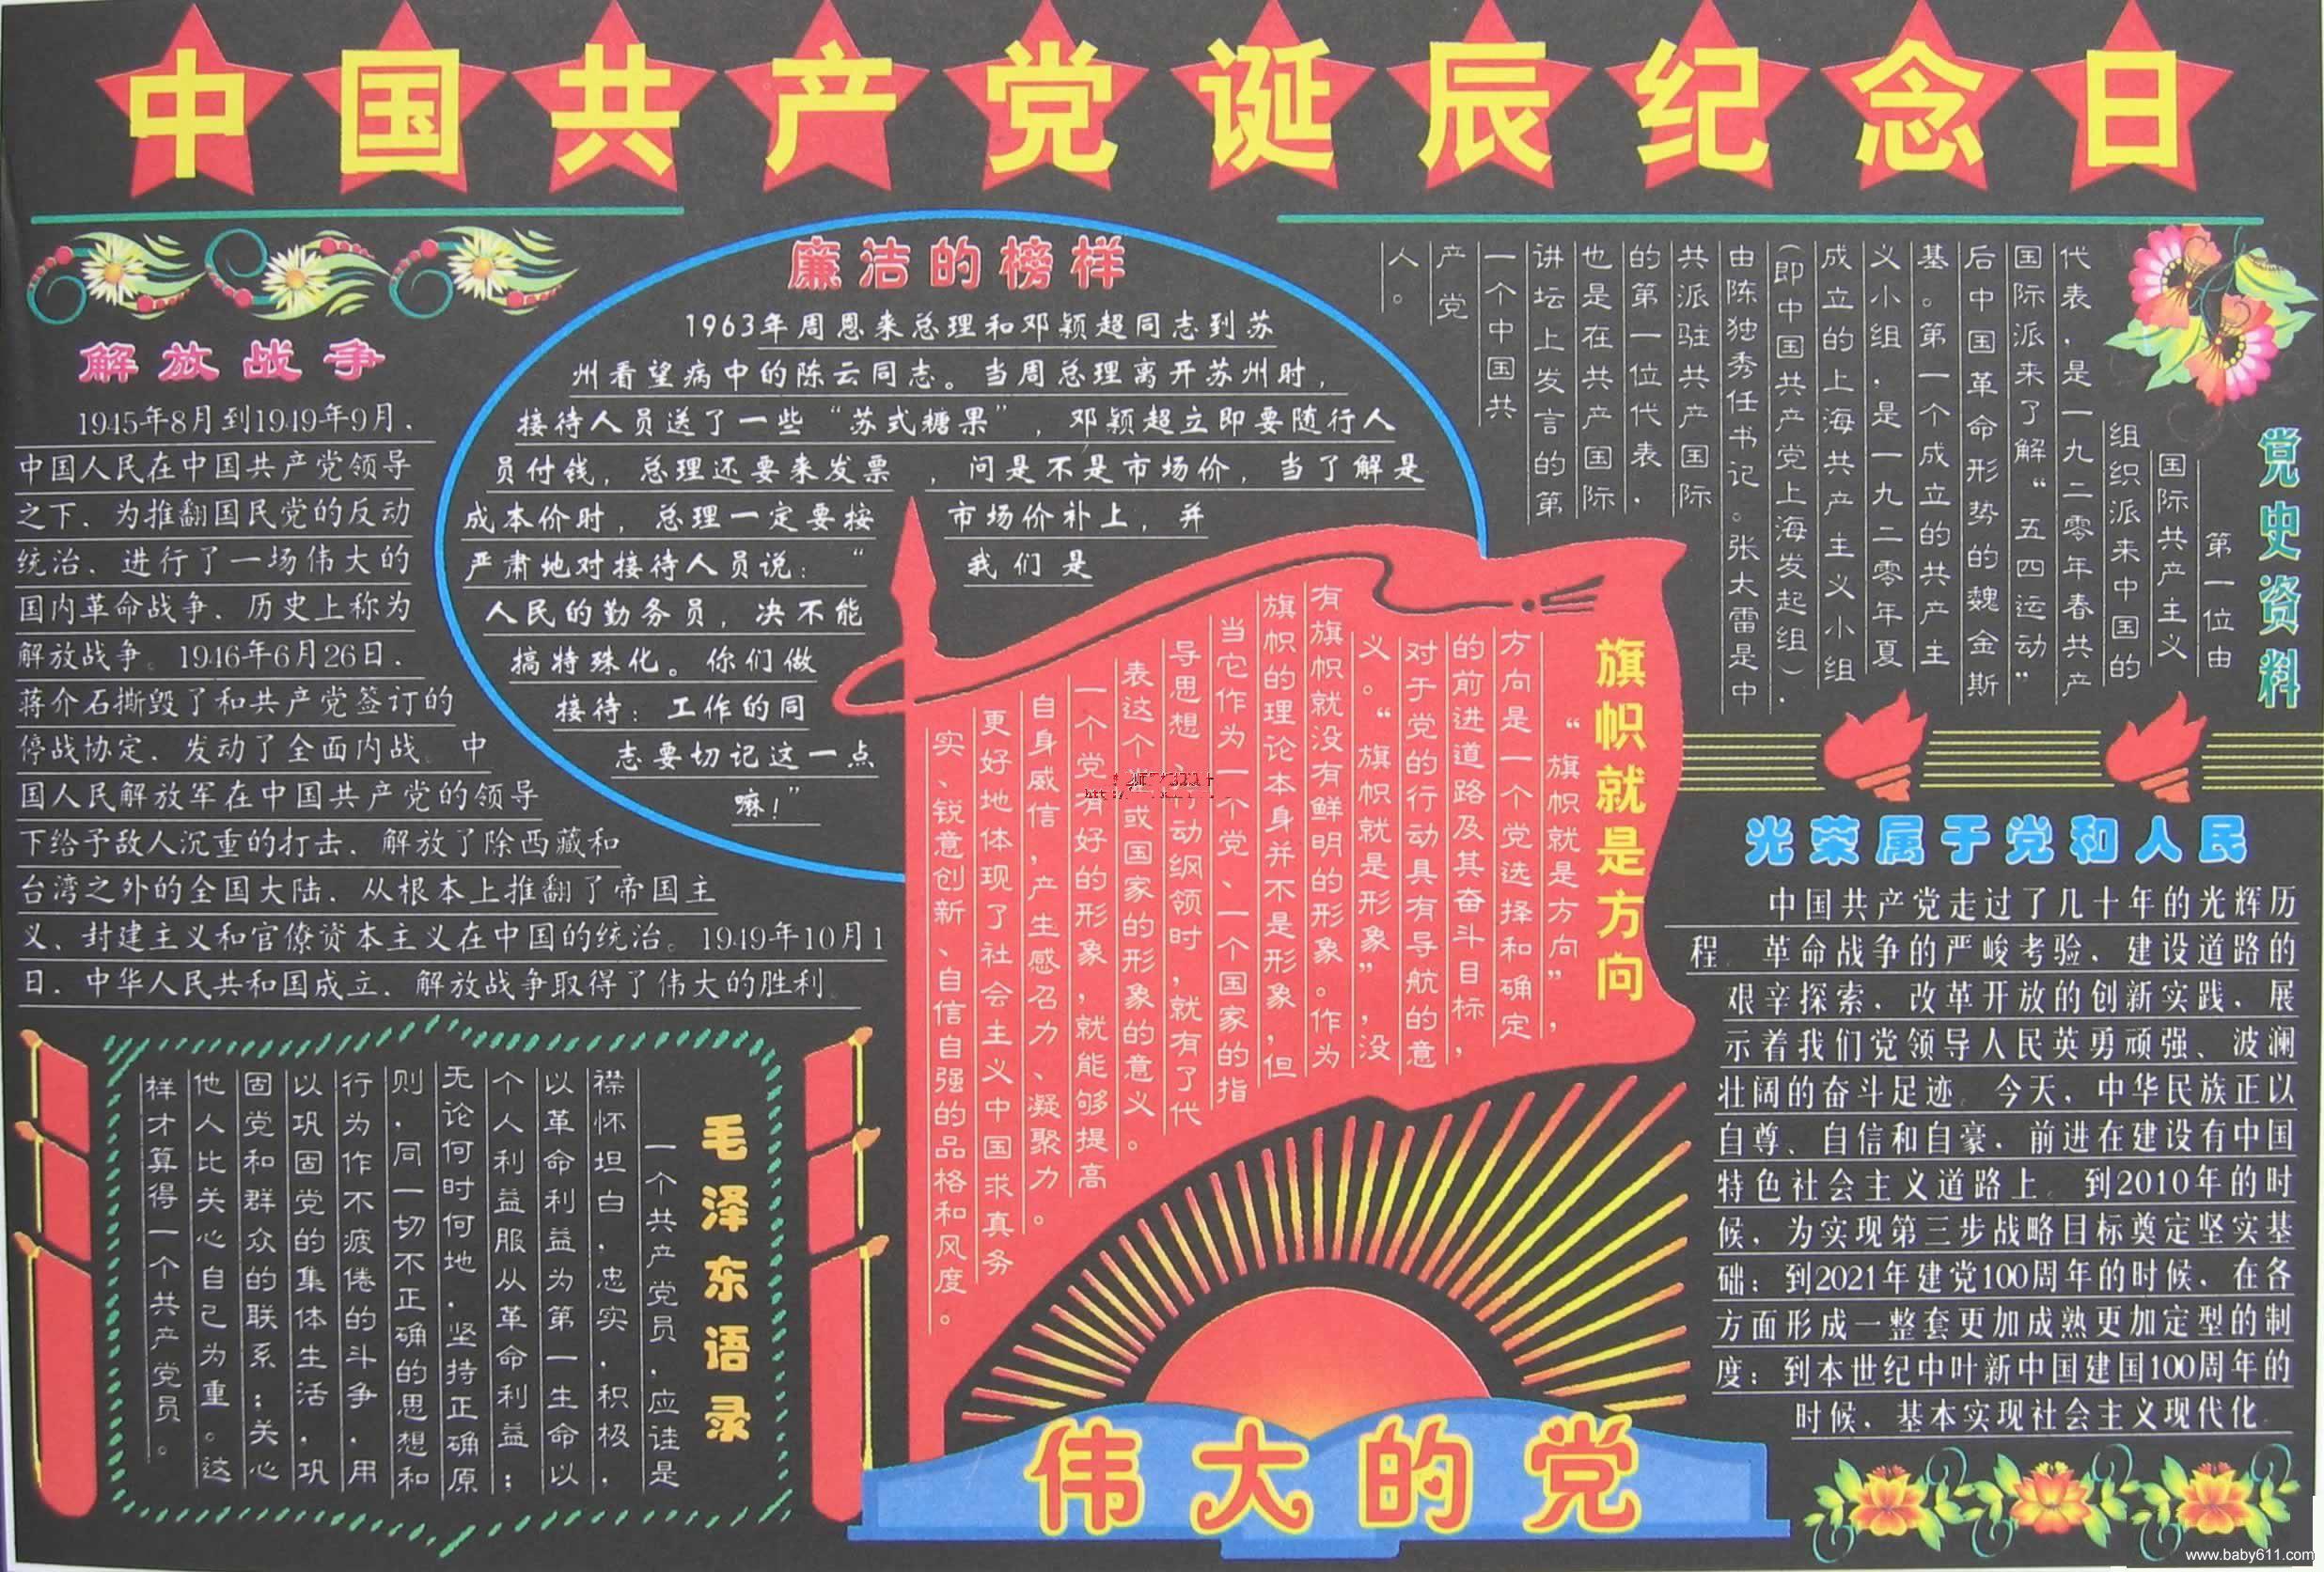 中国共产党诞辰纪念日
解放战争
1945年8月到1949年9月，
中国人民在中国共产党领导
之下，为推翻国民党的反动
统治，进行了一场伟大的
国内革命战争，历史上称为
解放战争。1946年6月26日，
蒋介石撕毁了和共产党签订的
停战协定，发动了全面内战。中
国人民解放军在中国共产党的领导
下给予敌人沉重的打击，解放了除西藏和
台湾之外的全国大陆，从根本上推翻了帝国主
义、封建主义和官僚资本主义在中国的统治。1949年10月1
日，中华人民共和国成立，解放战争取得了伟大的胜利。
廉洁的榜样
1963年周恩来总理和邓颖超同志到苏
州看望病中的陈云同志。当周总理离开苏州时，
接待人员送了一些“苏式糖果”，邓颖超立即要随行人
员付钱，总理还要来发票，问是不是市场价，当了解是
成本价时，总理一定要按市场价补上，并
严肃地对接待人员说：“我们是
人民的勤务员，决不能
搞特殊化。你们做
接待：工作的同
志要切记这一点
嘛！”
党史资料
第一位由
国际共产主义
组织派来中国的
代表，是一九二零年春共产
国际派来了解“五四运动”
后中国革命形势的魏金斯
基。第一个成立的共产主
义小组，是一九二零年夏
成立的上海共产主义小组
（即中国共产党上海发起组），
由陈独秀任书记。张太雷是中
共派驻共产国际
的第一位代表，
也是在共产国际
讲坛上发言的第
一个中国共
产党
人。
旗帜就是方向
“旗帜就是方向”，
方向是一个党选择和确定
的前进道路及其奋斗目标，
对于党的行动具有导航的意
义。“旗帜就是形象”，没
有旗帜就没有鲜明的形象。作为
旗帜的理论本身并不是形象，但
当它作为一个党、一个国家的指
导思想、动纲领时，就有了代
表这个党或国家的形象的意义。
一个党有好的形象，就能够提高
自身威信，产生感召力、凝聚力。
更好地体现了社会主义中国求真务
实、锐意创新、自信自强的品格和风度。
光荣属于党和人民
中国共产党走过了几十年的光辉历
程。革命战争的严峻考验，建设道路的
艰辛探索，改革开放的创新实践，展
示着我们党领导人民英勇顽强、波澜
壮阔的奋斗足迹。今天，中华民族正以
自尊、自信和自豪，前进在建设有中国
特色社会主义道路上。到2010年的时
候，为实现第三步战略目标奠定坚实基
础；到2021年建党100周年的时候，在各
方面形成一整套更加成熟更加定型的制
度；到本世纪中叶新中国建国100周年的
时候，基本实现社会主义现代化。
毛泽东语录
一个共产党员，应该是
襟怀坦白，忠实，积极，
以革命利益为第一生命以
个人利益服从革命利益；
无论何时何地，坚持正确原
则，同一切不正确的思想和
行为作不疲倦的斗争，用
以巩固党的集体生活，巩
固党和群众的联系；关心
他人比关心自己为重。这
样才算得一个共产党员。
伟大的党
www.baby611.com